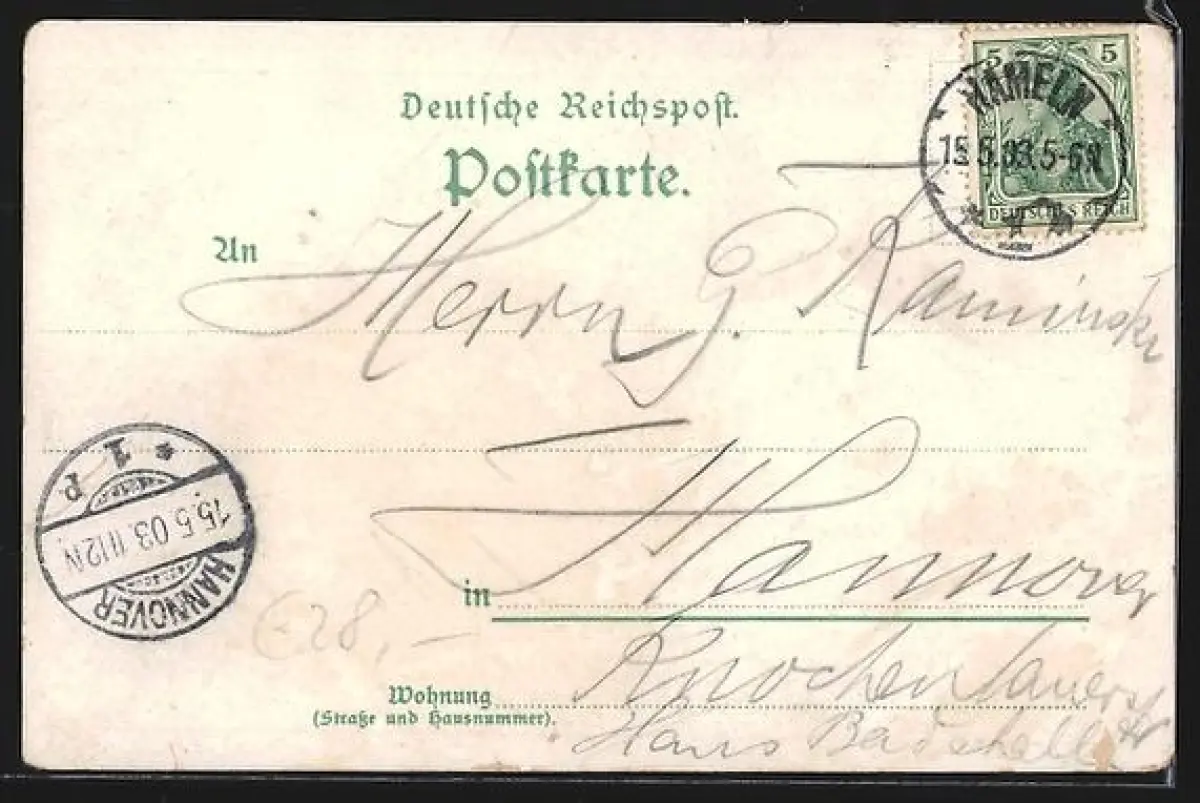 Deutsche Reichspost.
Postkarte.
5 5
DEUTSCHES REICH
HAMELN
15.5.03.5-6N.
* 1 b
An
Herrn G. Kaminski
HANNOVER
15.5.03.11-12N.
* 1 P
in Hannover
€ 28,-
Wohnung Knochenhauerstr
(Straße und Hausnummer).
Haus